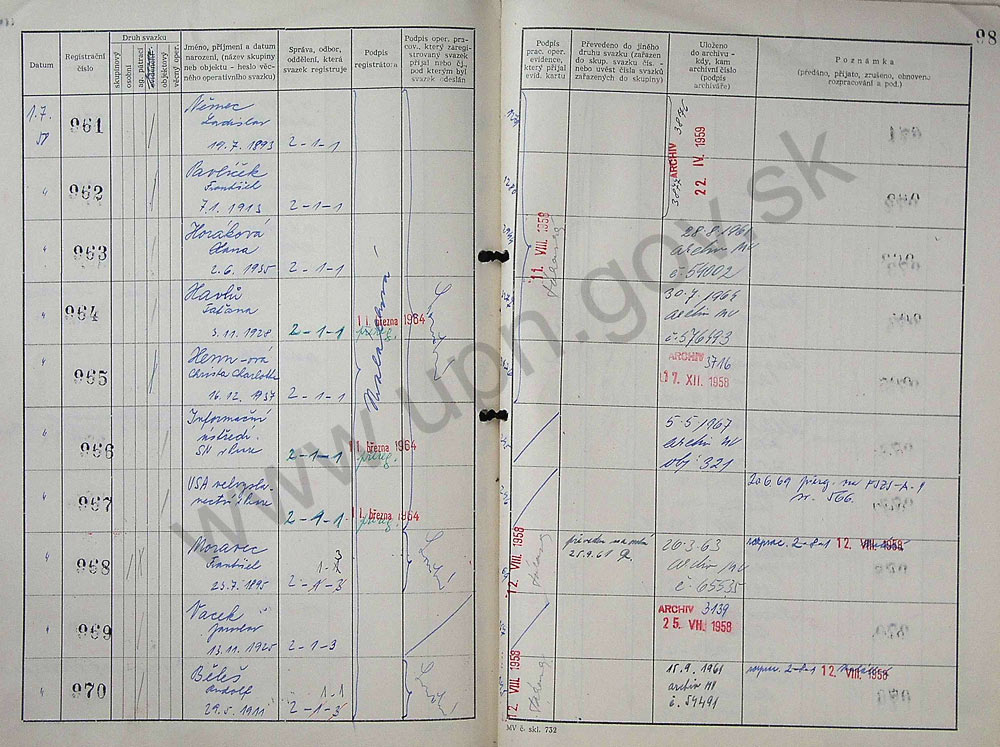 98
Datum
Registrační číslo
Druh svazku
skupinový
osobní
ag. pátrací
objektový
věcný oper.
Jméno, příjmení a datum
narození, (název skupiny
neb objektu - heslo věc-
ného operativního svazku)
Správa, odbor,
oddělení, která
svazek registruje
Podpis
registrátora
Podpis oper. pra-
cov., který zaregi-
strovaný svazek
přijal nebo čj.,
pod kterým byl
svazek odeslán
Podpis
prac. oper.
evidence,
který přijal
evid. kartu
Převedeno do jiného
druhu svazku (zařazen
do skup. svazku čís. -
nebo uvést čísla svazků
zařazených do skupiny)
Uloženo
do archivu -
kdy, kam
archivní číslo
(podpis
archiváře)
Poznámka
(předáno, přijato, zrušeno, obnoveno
rozpracování a pod.)
1.7.
58
961
Němec
Ladislav
19.7.1893
2-1-1
3876
ARCHIV
22 IV. 1959
"
962
Pavlíček
František
7.1.1913
2-1-1
"
963
Horáková
Hana
2.6.1935
2-1-1
11. VIII. 1958
28.8.1961
archiv MV
č. 59002
"
964
Havlů
Taťána
5.11.1928
2-1-1
11. března 1964
přereg.
30.7./1964
archiv MV
č. 576493
"
965
Henn-ová
Christa Charlotte
16.12.1937
2-1-1
ARCHIV 3716
17. XII. 1958
"
966
Informační
ústředí
2-1-1
11. března 1964
přereg.
5.5./1967
archiv MV
obj. 321
"
967
USA
2-1-1
11. března 1964
přereg.
20.6.69 přereg. na
"
968
Moravec
František
23.7.1895
2-1-3
12. VIII. 1958
25.9.61
20.3.63
archiv MV
č. 65535
rozprac. 2-8-1 12. VIII. 1958
"
969
Vacek
Jaroslav
13.11.1925
2-1-3
ARCHIV 3139
25. VII. 1958
"
970
Běleš
Rudolf
29.5.1911
1-1
2-1-3
12. VIII. 1958
15.9.1961
archiv MV
č. 59491
rozprac. 2-8-1 12. VIII. 1958
MV č. skl. 732
www.upn.gov.sk